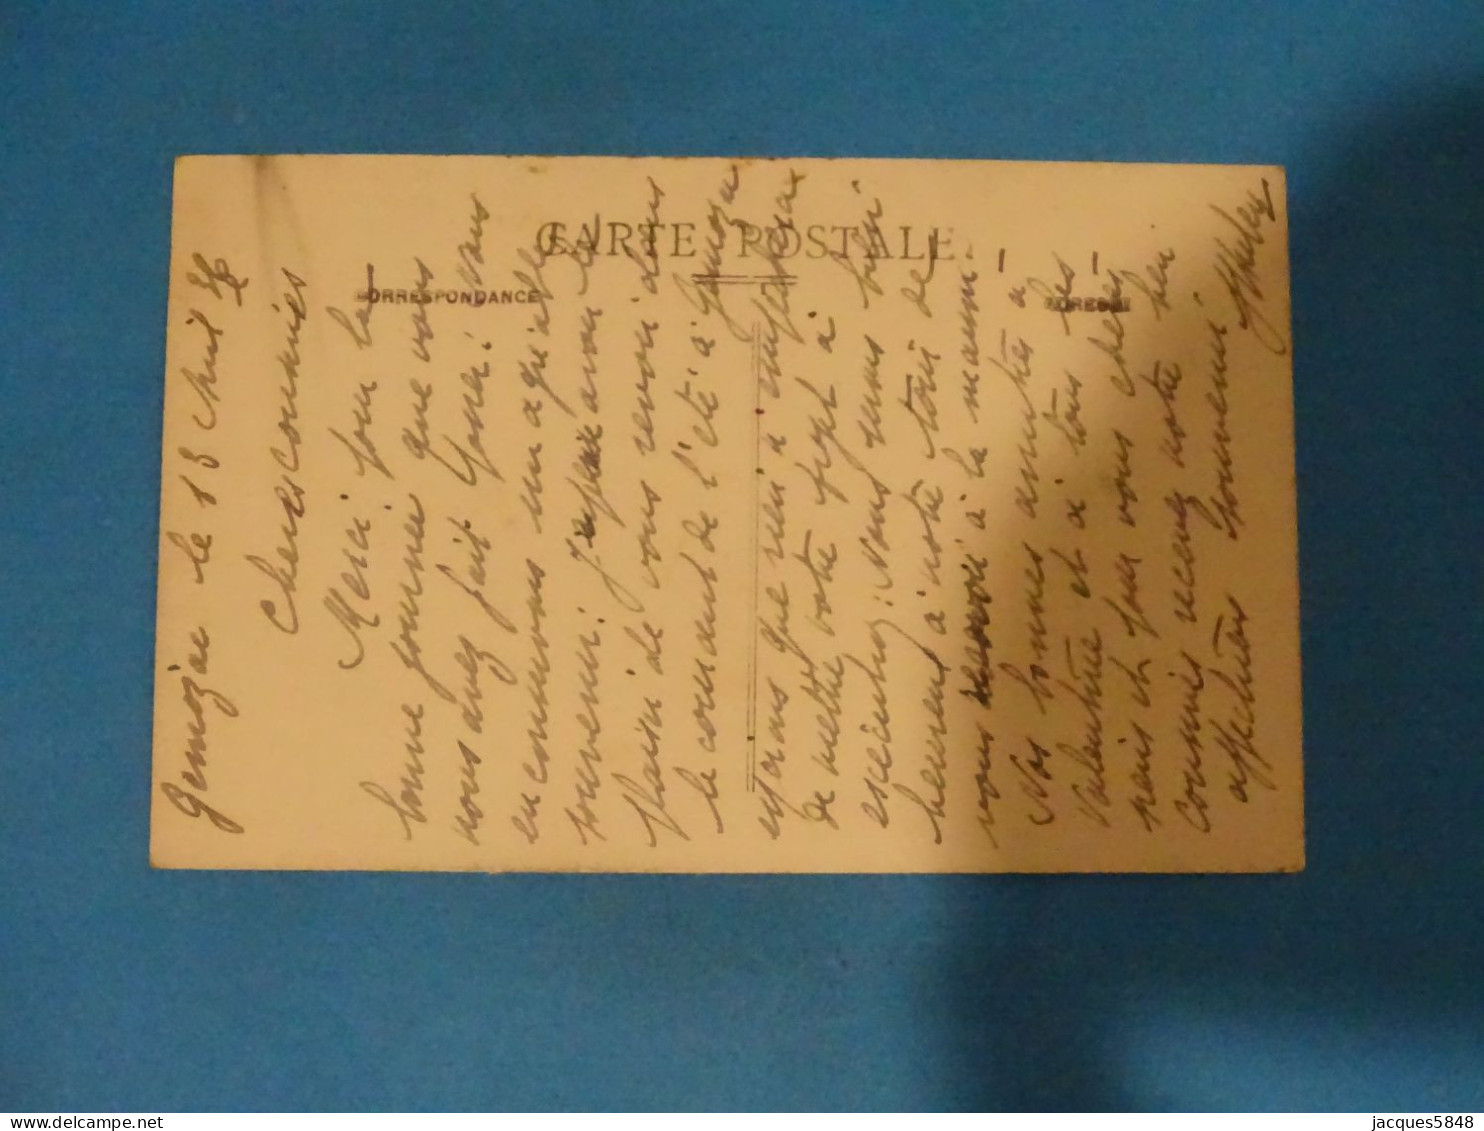 CARTE POSTALE
CORRESPONDANCE
ADRESSE
Gemozac le 18 Avril
Chers cousines
Merci pour la
bonne journée que vous
nous avez fait passer: nous
en conservons un agréable
souvenir. J'espère avoir le
plaisir de vous revoir dans
le courant de l'été à Gemozac
espérons que rien n'empêchera
de mettre votre projet à
exécution: Nous serons bien
heureux à notre tour de
vous recevoir à la maison
Nos bonnes amitiés à
Valentine et à tous les
siens et pour vous chères
cousines recevez notre bien
affectueux souvenir